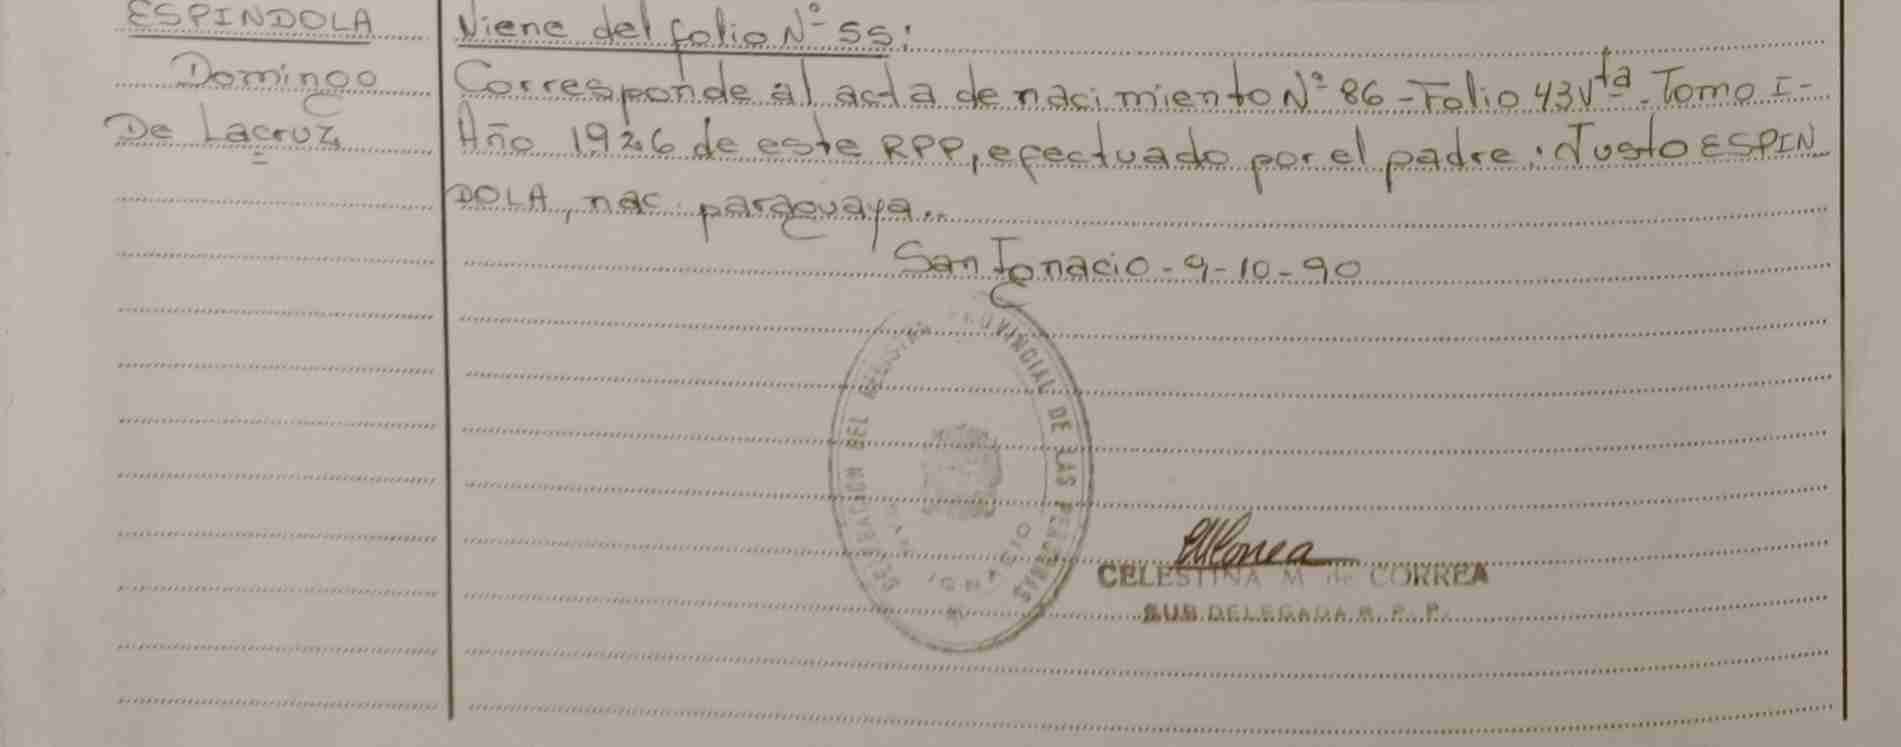 ESPINDOLA
Domingo
De Lacruz
Viene del folio Nº 55:
Corresponde al acta de nacimiento Nº 86 - Folio 43 Vta. Tomo I -
Año 1926 de este RPP, efectuado por el padre: Justo ESPIN
DOLA, nac. paraguaya..
San Ignacio - 9-10-90
DELEGACION DEL REGISTRO PROVINCIAL DE LAS PERSONAS
SAN IGNACIO
CELESTINA M de CORREA
SUB DELEGADA R. P. P.